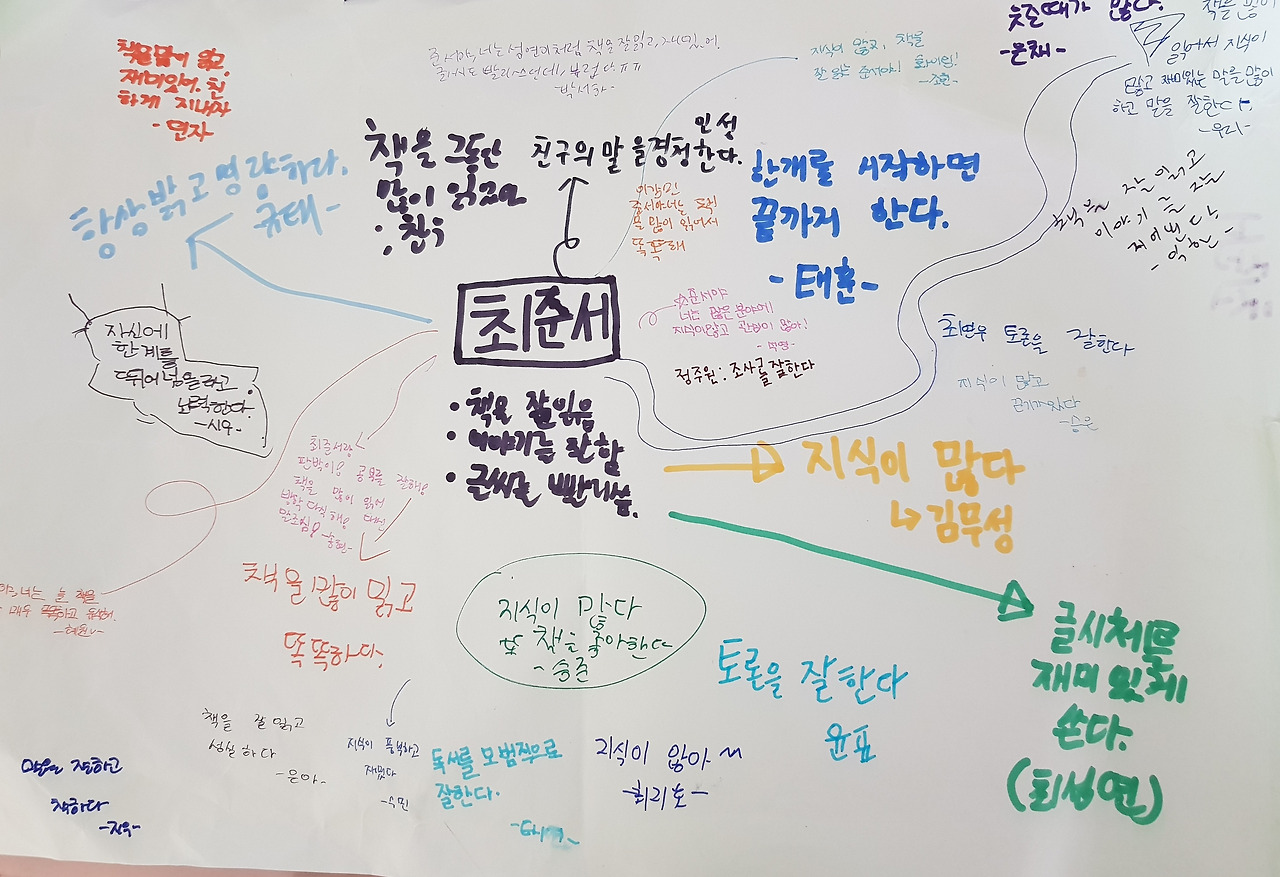 책을 많이 읽고,
재미있어. 친
하게 지내자
-연자
준서야, 너는 성연이처럼 책을 잘 읽고, 재밌어.
글씨도 빨리 쓰던데, 부럽다ㅠㅠ
-박서하-
지식이 많고, 책을
잘 읽는 준서야! 화이팅!
웃줄때가 많다.
-은채-
책을 많이
읽어서 지식이
많고 재미있는 말을 많이
하고 말을 잘한다.
-우리-
항상 밝고 명랑하다.
규태-
책을 그동안
많이 읽었고
친구의 말을 경청한다.
인성
한개를 시작하면
끝까지 한다.
-태훈-
준서야 너는 독서
를 많이 읽어서
똑똑해
잘 읽고
이야기를
최준서
☆준서야
너는 많은 분야에
지식이 많고 관심이 많아!
정주원: 조사를 잘한다
최연우 토론을 잘한다
지식이 많고
끈기가 있다
-승윤
자신에
한계를
뛰어넘을라고
노력한다.
-시우-
• 책을 잘 읽음
• 이야기를 잘 함
• 글씨를 빨리 씀.
최준서랑
공부를 잘해!
책을 많이 읽어
지식이 많다
↳김무성
글시체를
재미있게
쓴다.
(최성연)
너는 늘 책을
매우 똑똑하고
책을 많이 읽고
똑똑하다.
지식이 많다
또 책을 좋아한다
-승준
토론을 잘한다
윤표
책을 잘 읽고
성실하다
-은아-
지식이 풍부하고
재밌다
-숙민
독서를 모범적으로
잘한다.
지식이 많아~
-최리호-
말을 잘하고
착하다
-지우-